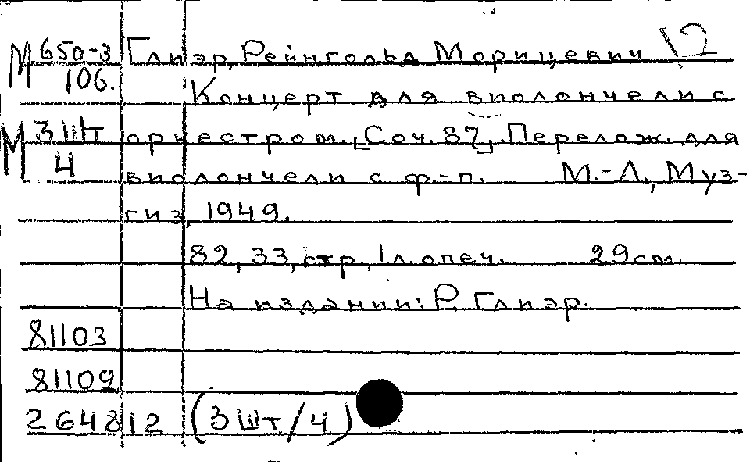 М 650-3 Глиэр, Рейнгольд Морицевич 12
106.
Концерт для виолончели с
М 3 шт оркестром. [Соч. 87]. Перелож. для
4 виолончели с ф.-п. М.-Л., Муз-
гиз, 1949.
82, 33, стр, 1 л. опеч. 29 см.
На издании: Р. Глиэр.
81103
81109
264812 (3 шт/4)